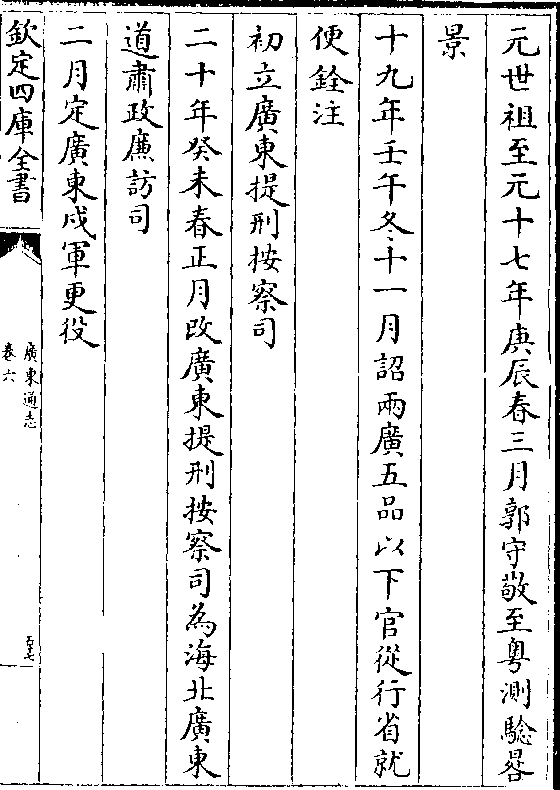 元世祖至元十七年庚辰春三月郭守敬至粵測驗晷
景
十九年壬午冬十一月詔兩廣五品以下官從行省就
便銓注
初立廣東提刑按察司
二十年癸未春正月改廣東提刑按察司為海北廣東
道肅政廉訪司
二月定廣東戍軍更役
欽定四庫全書
廣東通志
卷六